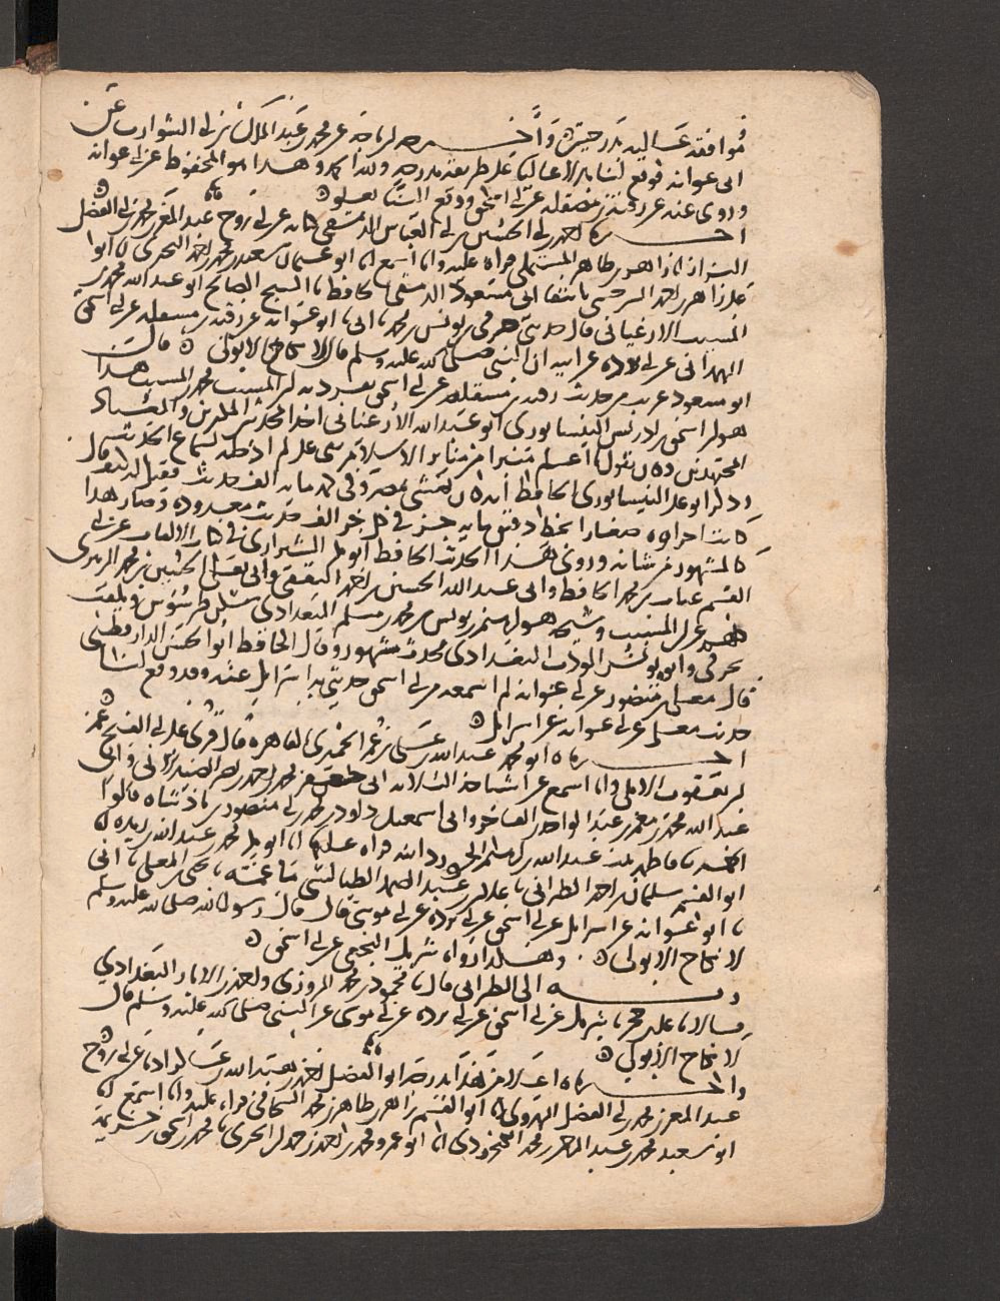 موافقة عالية بدرجتين وأخرجه ابن ماجه عن محمد بن عبد الملك بن أبي الشوارب عن
أبي عوانة فوقع لنا بدلا عاليا على طريقه بدرجة ولله الحمد وهذا هو المحفوظ عن أبي عوانة
وروى عنه عن رقبة بن مصقلة عن أبي إسحق ووقع لنا بعلو
أخبرناه أحمد بن أبي الحسين بن أبي العباس الدمشقي عن أبي روح عبد المعز بن محمد بن أبي الفضل
البزاز أنا زاهر بن طاهر المستملي قراءة عليه وأنا أسمع أنا أبو عثمان سعيد بن محمد بن أحمد البحيري أنا أبو
علي زاهر بن أحمد السرخسي بانتقاء أبي مسعود الدمشقي الحافظ نا الشيخ الصالح أبو عبد الله محمد بن
المسيب الأرغياني قال حدثني حرمي بن يونس بن محمد نا أبي نا أبو عوانة عن رقبة بن مصقلة عن أبي إسحق
الهمداني عن أبي بردة عن أبيه أن النبي صلى الله عليه وسلم قال لا نكاح إلا بولي قال
أبو مسعود غريب من حديث رقبة بن مصقلة عن أبي إسحق تفرد به ابن المسيب محمد بن المسيب هذا
هو ابن إسحق بن إدريس النيسابوري أبو عبد الله الأرغياني أحد المحدثين المكثرين والعباد
المجتهدين وكان يقول ما أعلم منبرا من منابر الإسلام بقي علي لم أدخله لسماع الحديث
وذكر أبو علي النيسابوري الحافظ أنه كان يمشي بمصر وفي كمه مائة ألف حديث فقيل له كيف قال
كانت أجزاؤه صغارا بخط دقيق مائة جزء في كل جزء ألف حديث معدودة وصار هذا
كالمشهور من شأنه وروى هذا الحديث الحافظ أبو بكر الشيرازي في كتاب الألقاب عن أبي
القسم بن محمد الحافظ وأبي عبد الله الحسين بن أحمد الثقفي وأبي الحسين بن محمد
عن ابن المسيب وشيخه هو إبراهيم بن يونس بن محمد بن مسلم البغدادي سكن طرسوس ويلقب
حرمي وأبوه يونس المؤدب البغدادي محدث مشهور وقال الحافظ أبو الحسن الدارقطني
قال معلى بن منصور عن أبي عوانة لم أسمعه من أبي إسحق حدثني به إسرائيل عنه وقد وقع لنا
حديث معلى عن أبي عوانة عن إسرائيل
أخبرناه أبو محمد عبد الله بن علي بن عمر الحميري بالقاهرة قال قرئ على أبي الفتح عمر
بن يعقوب الإربلي وأنا أسمع عن أشياخه الثلاثة أبي جعفر محمد بن أحمد بن نصر الصيدلاني وأبي
عبد الله محمد بن معمر بن عبد الواحد الفاخر وأبي إسمعيل داود بن محمد بن أبي منصور بن ماشاذه قالوا
أخبرتنا فاطمة بنت عبد الله بن إبراهيم الجوزدانية قراءة عليها أنا أبو بكر محمد بن عبد الله بن ريذه أنا
أبو القسم سليمان بن أحمد الطبراني نا علي بن عبد الصمد الطيالسي ما غمه نا يحيى بن المعلى نا أبي
نا أبو عوانة عن إسرائيل عن أبي إسحق عن أبي بردة عن أبي موسى قال قال رسول الله صلى الله عليه وسلم
لا نكاح إلا بولي وهكذا رواه شريك النخعي عن أبي إسحق
وبه إلى الطبراني قال نا محمود بن محمد المروزي وأحمد بن الأبار البغدادي
قالا نا علي بن حجر نا شريك عن أبي إسحق عن أبي بردة عن أبي موسى عن النبي صلى الله عليه وسلم قال
لا نكاح إلا بولي
وأخبرناه أعلى من هذا بدرجة أبو الفضل أحمد بن هبة الله بن عساكر أنا عن أبي روح
عبد المعز بن محمد بن أبي الفضل الهروي أنا أبو القسم زاهر بن طاهر بن محمد الشحامي قراءة عليه وأنا أسمع أنا
أبو سعيد محمد بن عبد الرحمن بن محمد الكنجروذي أنا أبو عمرو محمد بن أحمد بن حمدان الحيري نا محمد بن إسحق بن خزيمة